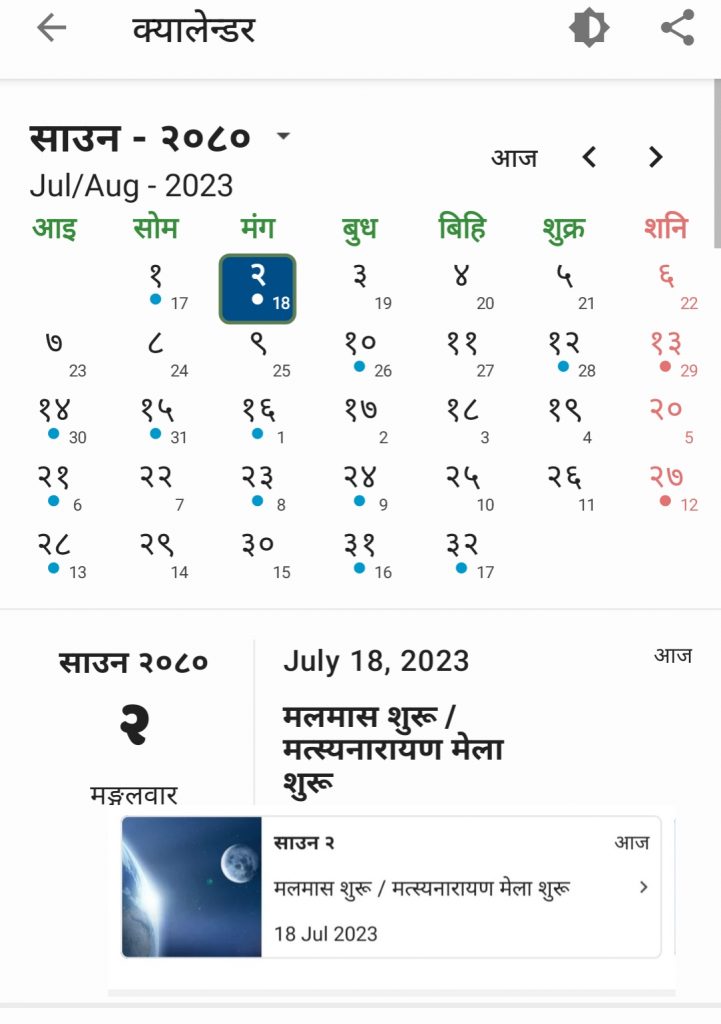 क्यालेन्डर
साउन - २०८०
आज
Jul/Aug - 2023
आइ सोम मंग बुध बिहि शुक्र शनि
१ २ ३ ४ ५ ६
17 18 19 20 21 22
७ ८ ९ १० ११ १२ १३
23 24 25 26 27 28 29
१४ १५ १६ १७ १८ १९ २०
30 31 1 2 3 4 5
२१ २२ २३ २४ २५ २६ २७
6 7 8 9 10 11 12
२८ २९ ३० ३१ ३२
13 14 15 16 17
साउन २०८०
२
मङ्गलवार
July 18, 2023
आज
मलमास शुरू /
मत्स्यनारायण मेला
शुरू
साउन २
आज
मलमास शुरू / मत्स्यनारायण मेला शुरू
18 Jul 2023